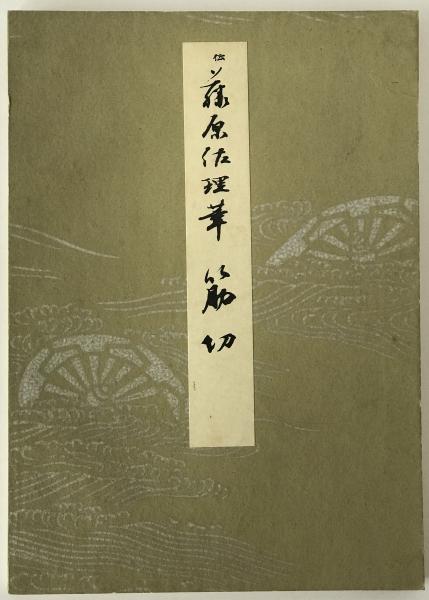 伝 藤原佐理筆 筋切